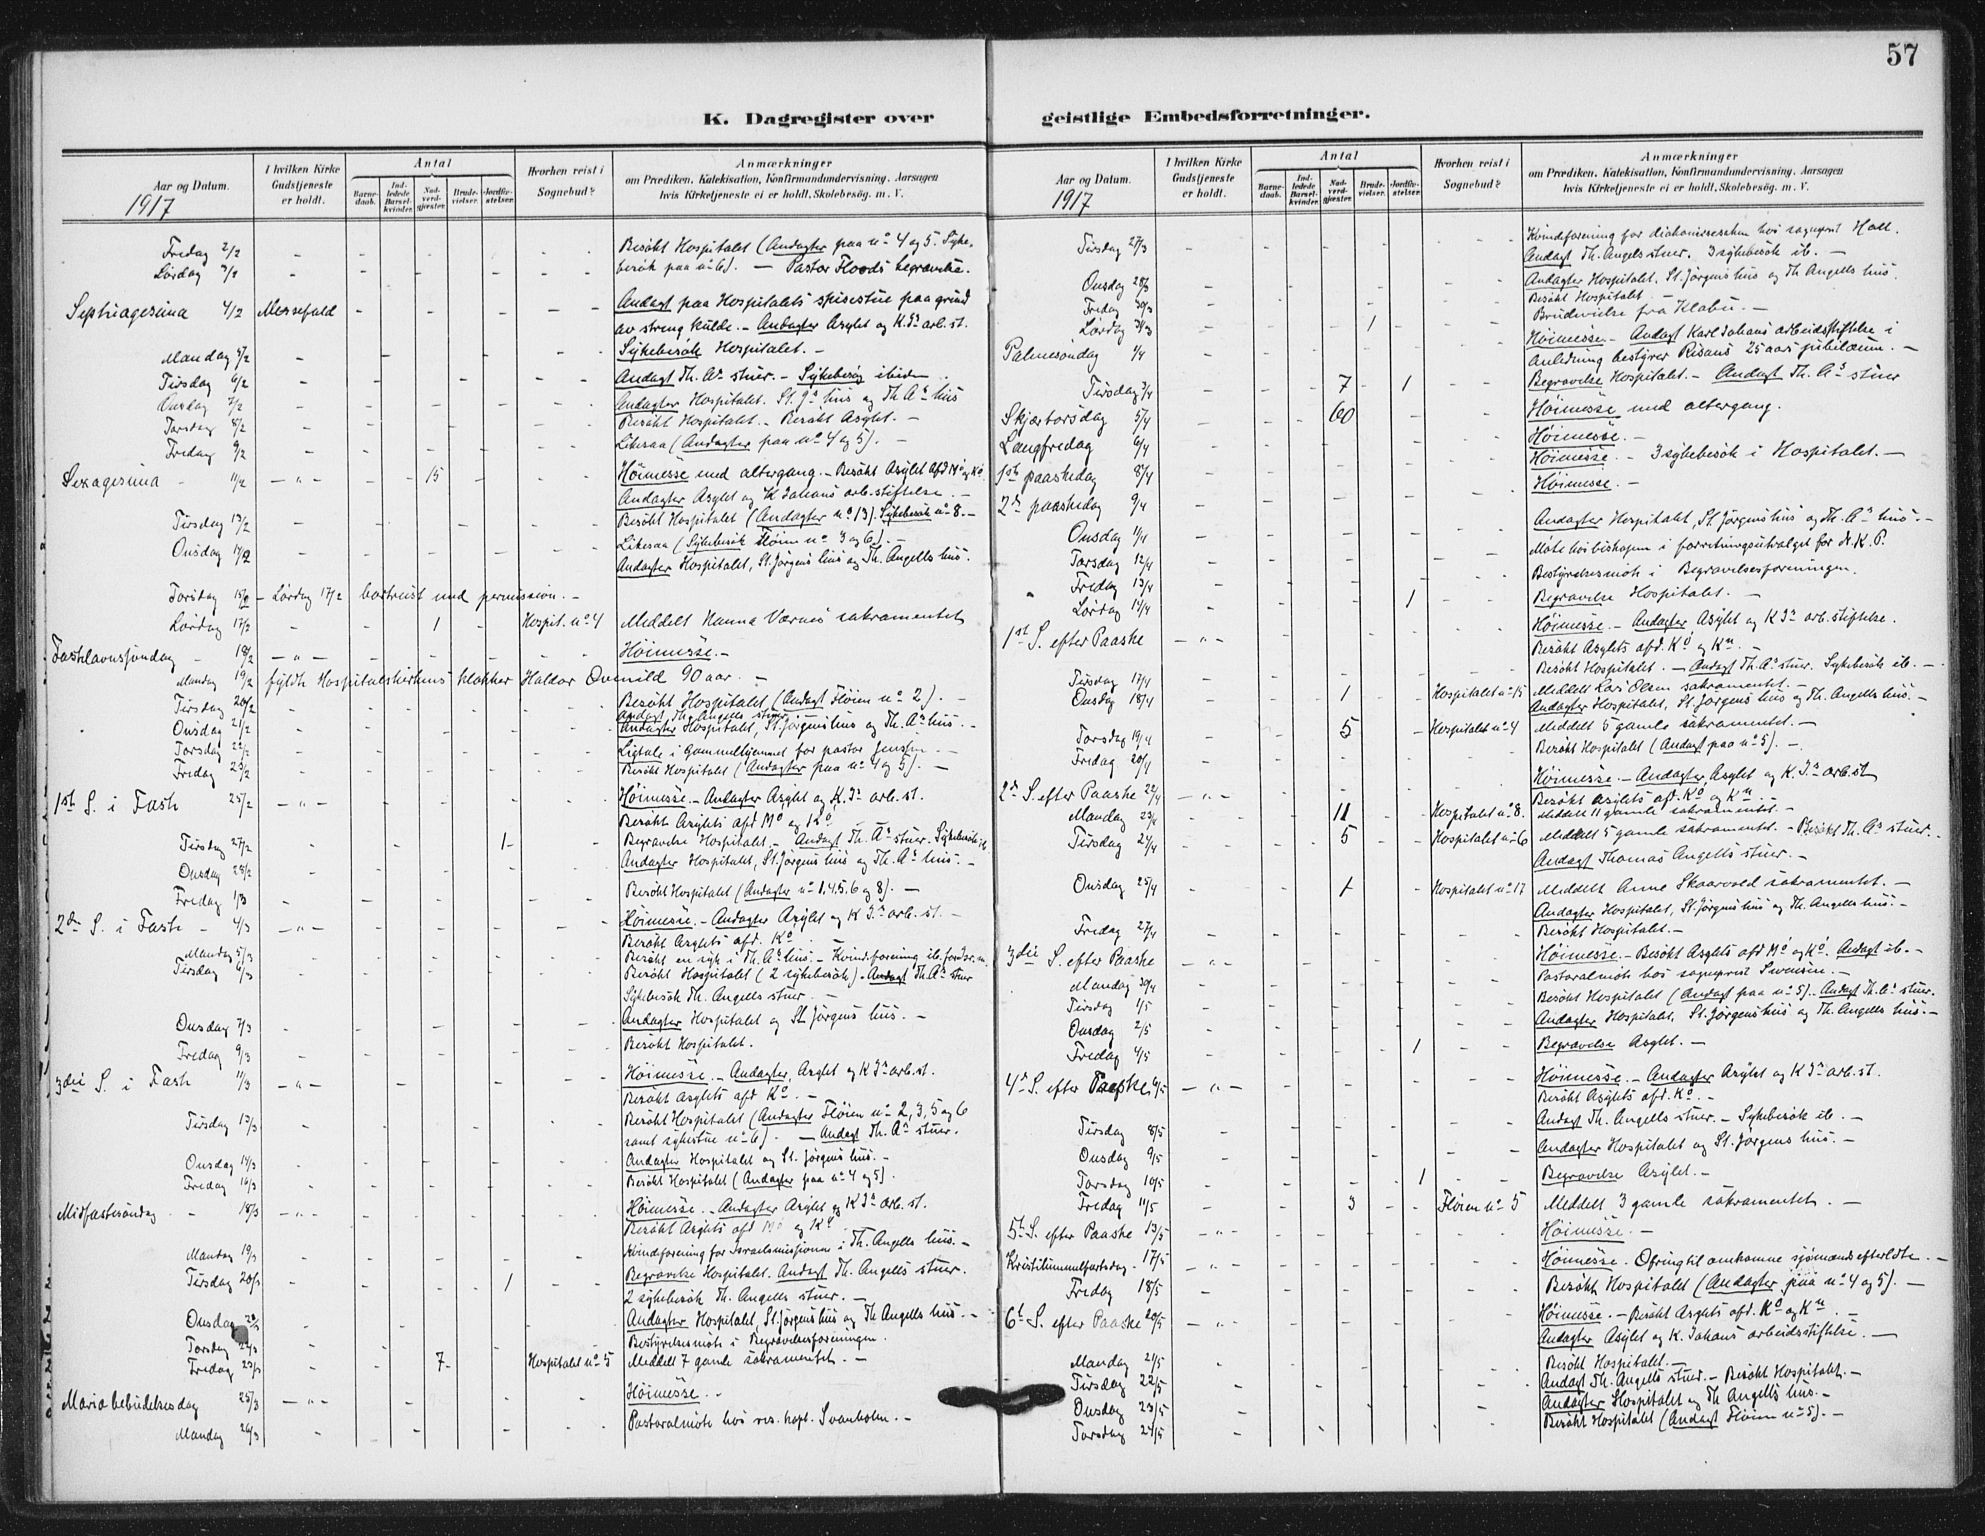 57
K. Dagregister over geistlige Embedsforretninger.
Aar og Datum.
1917
I hvilken Kirke Gudstjeneste er holdt.
Antal
Barnedaab.
Indledede Barselkvinder.
Nadverdgjester.
Brudevielser.
Jordfæstelser.
Hvorhen reist i Sognebud?
Anmærkninger
om Prædiken. Katekisation, Konfirmandundervisning. Aarsagen
hvis Kirketjeneste ei er holdt. Skolebesøg. m. V.
Fredag 2/2 Besøkt Hospitalet (Andagter paa no 4 og 5. Syke-
Lørdag 3/2 besøk paa no 6). — Pastor Floods begravelse.
Septuagesima 4/2 Messefald Andagt paa Hospitalets spisestue paa grund
av streng kulde. - Andagter Asylet og K. Js arb. st.
Mandag 5/2 Sykebesøk Hospitalet. -
Tirsdag 6/2 Andagt Th. As stuer. - Sykebesøg ibidem
Onsdag 7/2 Andagter Hospitalet. St. Js hus og Th As hus
Torsdag 8/2 Besøkt Hospitalet. - Besøkt Asylet. -
Fredag 9/2 Likesaa (Andagter paa no 4 og 5). -
Sexagesima 11/2 - " - 15 Høimesse med altergang. - Besøkt Asylet afd Mo og Ko
Andagter Asylet og K Johans arb. stiftelse. -
Tirsdag 13/2 Besøkt Hospitalet (Andagter no 13). Sykebesøk no 8. -
Onsdag 14/2 Likesaa (Sykebesøk Fløien no 3 og 6). -
Andagter Hospitalet, St. Jørgens hus og Th. Angells hus.
Torsdag 15/2 - Lørdag 17/2 bortreist med permission. -
Lørdag 17/2 1 Hospit. no 4 Meddelt Hanna Værnes sakramentet
Fastelavnssøndag 18/2 - " - Høimesse. -
Mandag 19/2 fyldte Hospitalskirkens klokker Haldor Overvild 90 aar. -
Tirsdag 20/2 Besøkt Hospitalet (Andagt Fløien no 2). -
Andagt Th. Angells stuer
Onsdag 21/2 Andagter Hospitalet, St. Jørgens hus og Th. As hus. -
Torsdag 22/2 Ligtale i Gammelhjemmet for pastor Jensen. -
Fredag 23/2 Besøkt Hospitalet (Andagter paa no 4 og 5). -
1ste S. i Faste 25/2 - " - Høimesse. - Andagter Asylet og K. Js arb. st.
Besøkt Asylets afd Mo og Ko.
Tirsdag 27/2 1 Begravelse Hospitalet. - Andagt Th. As stuer. Sykebesøk ib.
Onsdag 28/2 Andagter Hospitalet, St. Jørgens hus og Th. As hus. -
Fredag 2/3 Besøkt Hospitalet (Andagter no 1.4.5.6 og 8). -
2den S. i Faste 4/3 - " - Høimesse. - Andagter Asylet og K Js arb. st. -
Besøkt Asylets afd. Ko. -
Mandag 5/3 Besøkt en syk i Th. As hus. - Kvindeforening ib.
Tirsdag 6/3 Besøkt Hospitalet (2 sykebesøk) - Andagt Th. As stuer
Sykebesøk Th. Angells stuer. -
Onsdag 7/3 Andagter Hospitalet og St Jørgens hus. -
Fredag 9/3 Besøkt Hospitalet.
3die S. i Faste 11/3 - " - Høimesse. - Andagter Asylet og K Js arb. st.
Besøkt Asylets afd Ko. -
Tirsdag 13/3 Besøkt Hospitalet (Andagter Fløien no 2, 3, 5 og 6
samt sykestue no 6). - Andagt Th. As stuer.
Onsdag 14/3 Andagter Hospitalet og St. Jørgens hus. -
Fredag 16/3 Besøkt Hospitalet (Andagter paa no 4 og 5).
Midfastesøndag 18/3 - " - Høimesse. - Andagter Asylet og K Js arb. st.
Besøkt Asylets afd Mo og Ko.
Mandag 19/3 Kvindeforening for Israelsmissionen i Th. Angells hus. -
Tirsdag 20/3 1 Begravelse Hospitalet. Andagt Th. Angells stuer.
2 sykebesøk Th. Angells stuer. -
Onsdag Andagter Hospitalet, St. Jørgens hus og Th Angells hus. -
Torsdag 22/3 Bestyrelsesmøte i Begravelsesforeningen.
Fredag 23/3 7 Hospitalet no 5 Meddelt 7 gamle sakramentet. -
Maria bebudelsesdag 25/3 - " - Høimesse. -
Mandag 26/3 Pastoralmøte hos res. kapt. Svanholm. -
Aar og Datum.
1917
I hvilken Kirke Gudstjeneste er holdt.
Antal
Barnedaab.
Indledede Barselkvinder.
Nadverdgjester.
Brudevielser.
Jordfæstelser.
Hvorhen reist i Sognebud?
Anmærkninger
om Prædiken. Katekisation, Konfirmandundervisning. Aarsagen
hvis Kirketjeneste ei er holdt. Skolebesøg. m. V.
Tirsdag 27/3 Kvindeforening for diakonissesaken hos sogneprest Hall.
Andagt Th. Angells stuer. 3 sykebesøk ib. -
Onsdag 28/3 Andagter Hospitalet. St. Jørgens hus og Th Angells hus.
Fredag 30/3 Besøkt Hospitalet. -
Lørdag 31/3 1 Brudevielse fra Klæbu. -
Palmesøndag 1/4 Høimesse. - Andagt Karl Johans arbeidsstiftelse i
anledning bestyrer Risans 25 aars jubilæum. -
Tirsdag 3/4 7 1 Begravelse Hospitalet. - Andagt Th. As stuer
Skjærtorsdag 5/4 60 Høimesse med altergang.
Langfredag 6/4 Høimesse. -
1ste paaskedag 8/4 Høimesse. - 3 sykebesøk i Hospitalet. -
2den paaskedag 9/4 Høimesse. -
Onsdag 11/4 Andagter Hospitalet, St. Jørgens hus og Th. As hus. -
Torsdag 12/4 Møte hos biskopen i forretningsutvalget for N. K. P.
Fredag 13/4 Bestyrelsesmøte i Begravelsesforeningen.
Lørdag 14/4 1 Begravelse Hospitalet. -
1ste S. efter Paaske - " - Høimesse. - Andagter Asylet og K Js arb. stiftelse.
Besøkt Asylets afd. Ko og Km. -
Tirsdag 17/4 Besøkt Hospitalet. - Andagt Th. As stuer. Sykebesøk ib. -
Onsdag 18/4 1 Hospitalet no 15 Meddelt Lars Olsen sakramentet. -
Andagter Hospitalet, St Jørgens hus og Th. Angells hus. -
Torsdag 19/4 5 Hospitalet no 4 Meddelt 5 gamle sakramentet. -
Fredag 20/4 Besøkt Hospitalet (Andagt paa no 5). -
2den S. efter Paaske 22/4 - " - Høimesse. - Andagter Asylet og K. Js arb. st
Besøkt Asylets afd. Ko og Km. -
Mandag 23/4 11 Hospitalet no 8. Meddelt 11 gamle sakramentet. -
Tirsdag 24/4 5 Hospitalet no 6 Meddelt 5 gamle sakramentet. - Besøkt Th. As stuer. -
Andagt Thomas Angells stuer. -
Onsdag 25/4 1 Hospitalet no 17 Meddelt Anne Skaarvold sakramentet. -
Andagter Hospitalet, St. Jørgens hus og Th. Angells hus. -
Fredag 27/4 Besøkt Hospitalet. -
3die S. efter Paaske - " - Høimesse. - Besøkt Asylets afd Mo og Ko. Andagt ib. -
Mandag 30/4 Pastoralmøte hos sogneprest Svensen. -
Tirsdag 1/5 Besøkt Hospitalet (Andagt paa no 5). - Andagt Th. As stuer.
Onsdag 2/5 Andagter Hospitalet, St. Jørgens hus og Th. Angells hus. -
Fredag 4/5 1 Begravelse Asylet. -
4de S. efter Paaske 6/5 - " - Høimesse. - Andagter Asylet og K Js arb. st.
Besøkt Asylets afd. Ko. -
Tirsdag 8/5 Andagt Th. Angells stuer. - Sykebesøk ib. -
Onsdag 9/5 Andagter Hospitalet og St. Jørgens hus. -
Torsdag 10/5 1 Begravelse Asylet. -
Fredag 11/5 3 Fløien no 5 Meddelt 3 gamle sakramentet. -
5te S. efter Paaske 13/5 - " - Høimesse. -
Kristihimmelfartsdag. 17/5 - " - Høimesse. - Ofring til omkomne sjømænds efterlatte. -
Fredag 18/5 Besøkt Hospitalet (Andagter paa no 4 og 5). -
6te S. efter Paaske 20/5 - " - Høimesse. - Besøkt Asylets afd. Ko og Km. -
Andagter Asylet og K. Johans arbeidsstiftelse. -
Mandag 21/5 Besøkt Hospitalet. -
Tirsdag 22/5 Andagt Th. Angells stuer. - Besøkt Hospitalet. -
Onsdag 23/5 Andagter Hospitalet og Th Angells hus. -
Torsdag 24/5 Besøkt Hospitalet (Andagt Fløien no 5). -